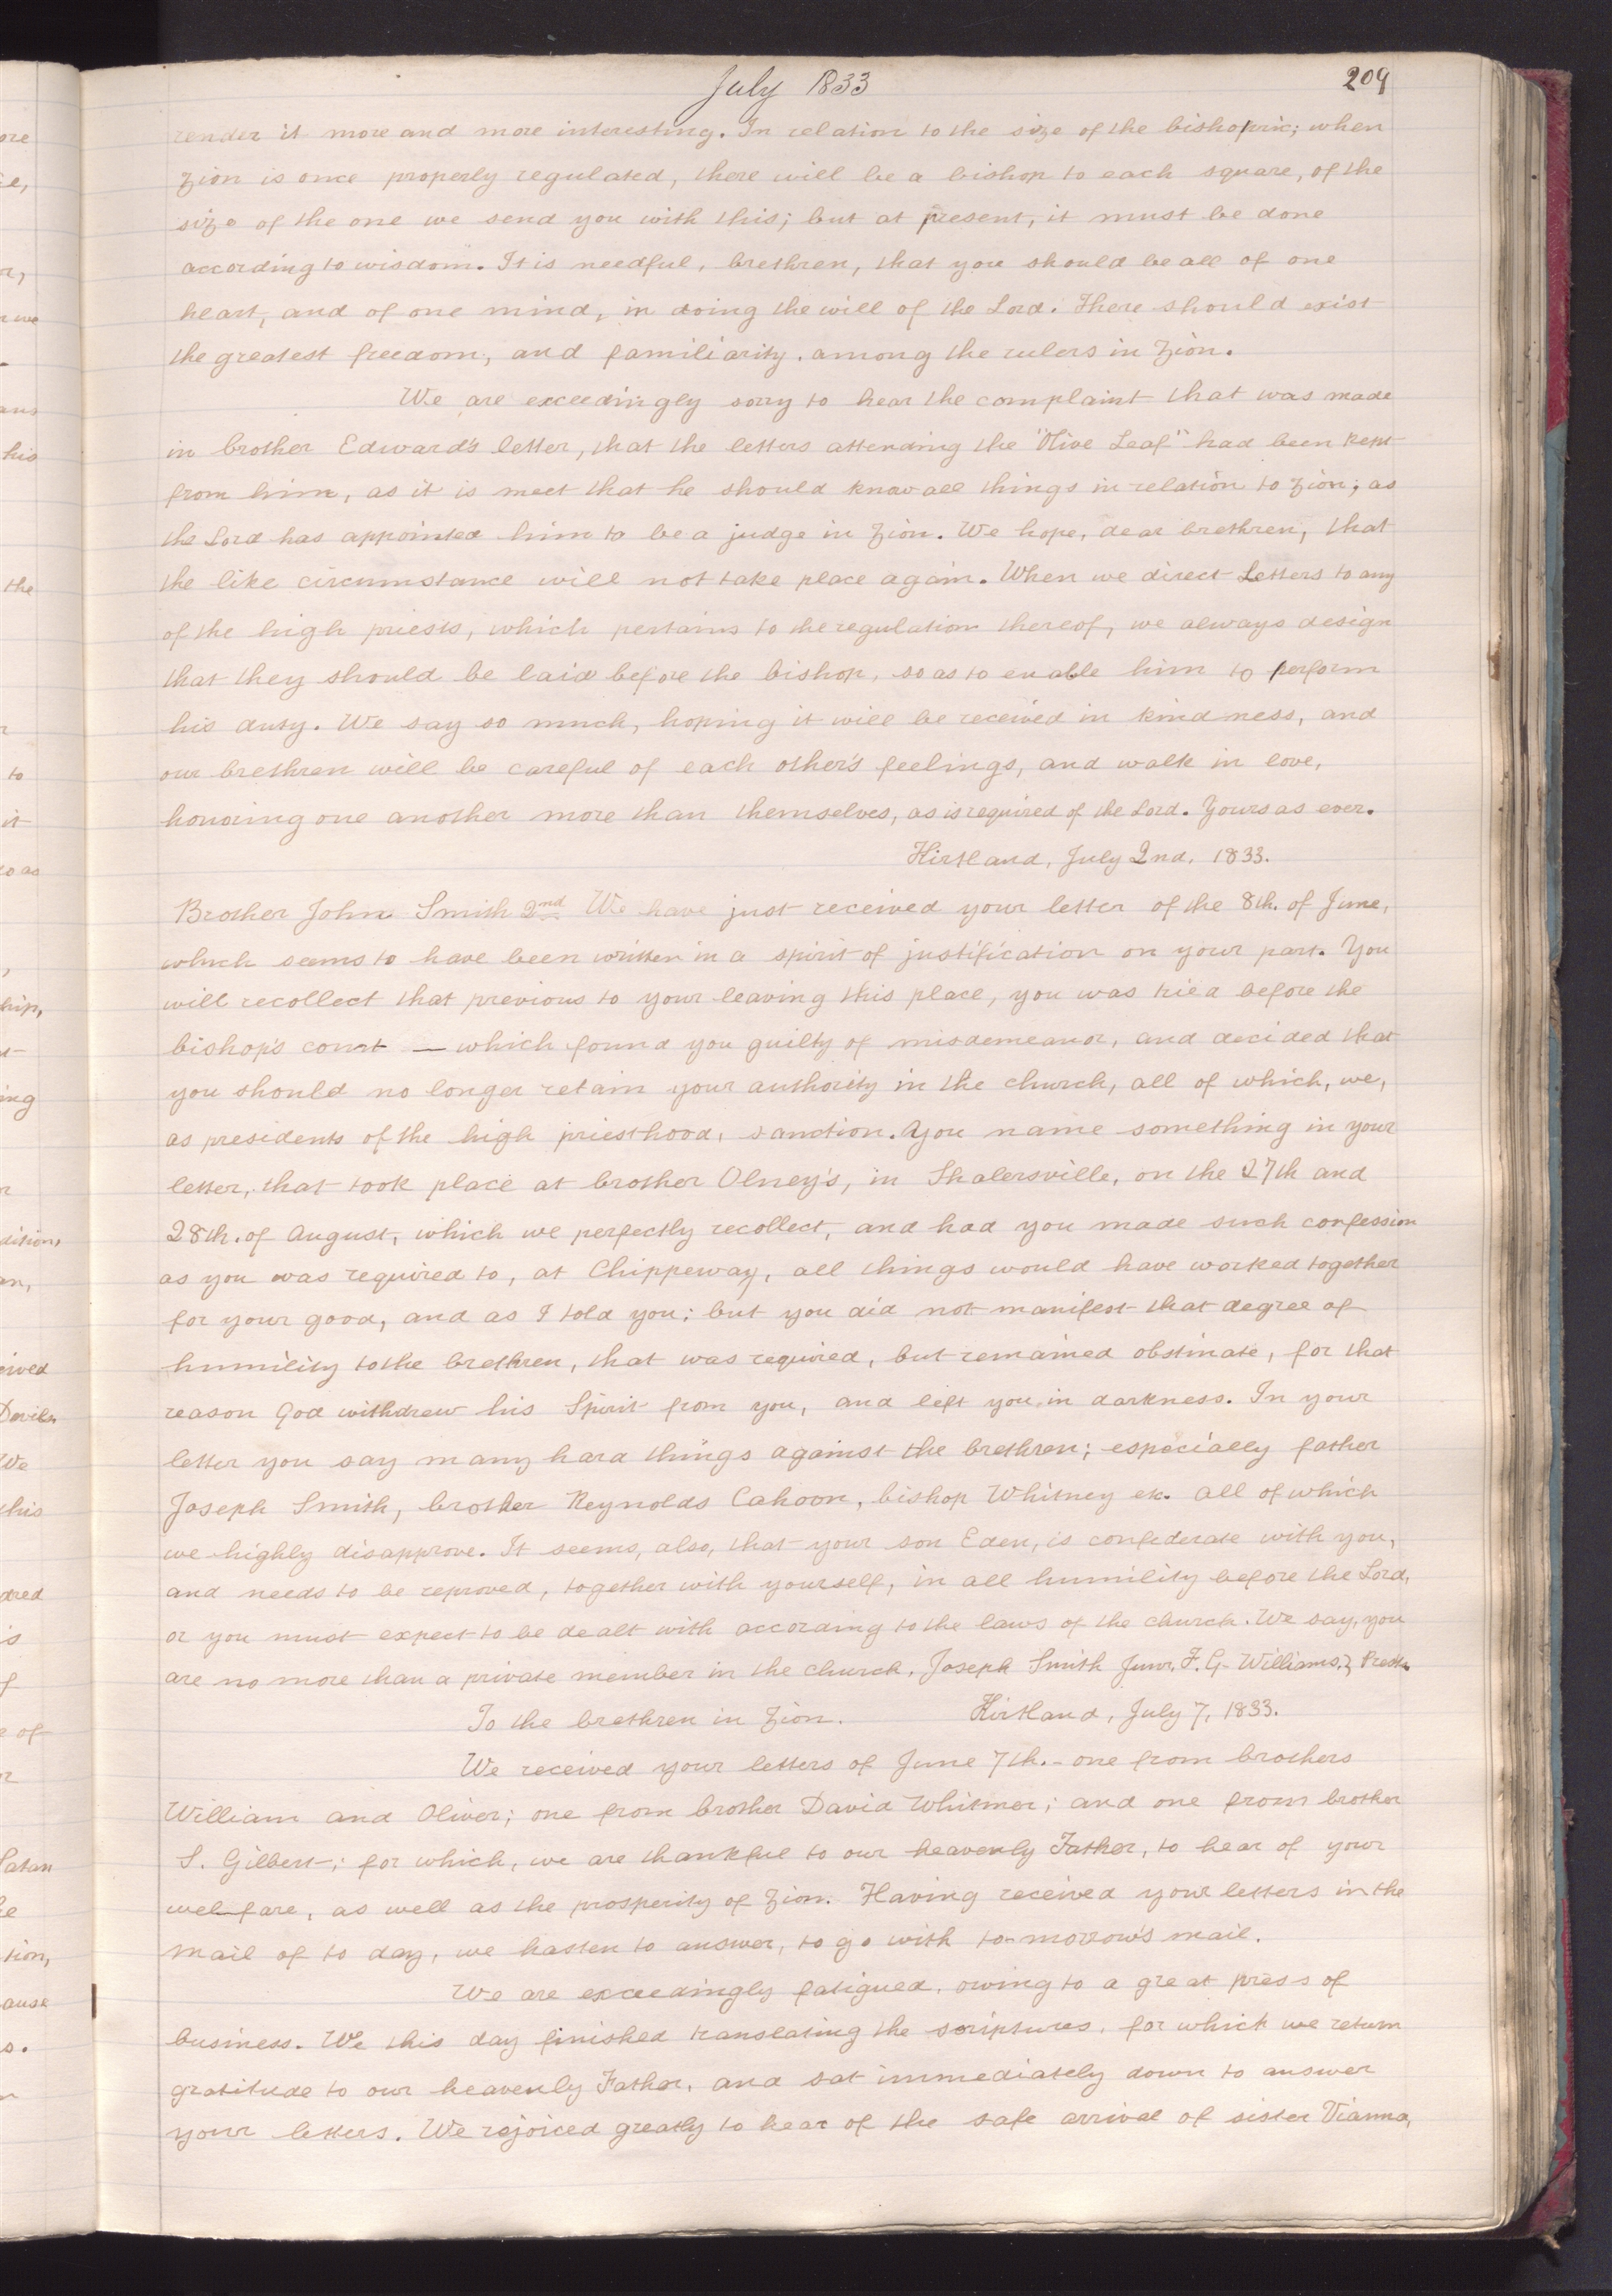 July 1833
209
render it more and more interesting. In relation to the size of the bishopric; when
Zion is once properly regulated, there will be a bishop to each square, of the
size of the one we send you with this; but at present, it must be done
according to wisdom. It is needful, brethren, that you should be all of one
heart, and of one mind, in doing the will of the Lord. There should exist
the greatest freedom, and familiarity, among the rulers in Zion.
We are exceedingly sorry to hear the complaint that was made
in brother Edward's letter, that the letters attending the "Olive Leaf" had been kept
from him, as it is meet that he should know all things in relation to Zion; as
the Lord has appointed him to be a judge in Zion. We hope, dear brethren, that
the like circumstance will not take place again. When we direct Letters to any
of the high priests, which pertains to the regulation thereof, we always design
that they should be laid before the bishop, so as to enable him to perform
his duty. We say so much, hoping it will be received in kindness, and
our brethren will be careful of each other's feelings, and walk in love,
honoring one another more than themselves, as is required of the Lord. Yours as ever.
Kirtland, July 2nd, 1833.
Brother John Smith 2nd We have just received your letter of the 8th. of June,
which seems to have been written in a spirit of justification on your part. You
will recollect that previous to your leaving this place, you was tried before the
bishop's court — which found you guilty of misdemeanor, and decided that
you should no longer retain your authority in the church, all of which, we,
as presidents of the high priesthood, sanction. You name something in your
letter, that took place at brother Olney's, in Shalersville, on the 27th and
28th. of August, which we perfectly recollect, and had you made such confession
as you was required to, at Chippeway, all things would have worked together
for your good, and as I told you; but you did not manifest that degree of
humility to the brethren, that was required, but remained obstinate, for that
reason God withdrew his Spirit from you, and left you in darkness. In your
letter you say many hard things against the brethren; especially father
Joseph Smith, brother Reynolds Cahoon, bishop Whitney etc. all of which
we highly disapprove. It seems, also, that your son Eden, is confederate with you,
and needs to be reproved, together with yourself, in all humility before the Lord,
or you must expect to be dealt with according to the laws of the church. We say, you
are no more than a private member in the church. Joseph Smith Junr, F. G. Williams, } Prests
To the brethren in Zion. Kirtland, July 7, 1833.
We received your letters of June 7th. - one from brothers
William and Oliver; one from brother David Whitmer; and one from brother
S. Gilbert; for which, we are thankful to our heavenly Father, to hear of your
welfare, as well as the prosperity of Zion. Having received your letters in the
mail of to day, we hasten to answer, to go with to-morrow's mail.
We are exceedingly fatigued, owing to a great press of
business. We this day finished translating the scriptures, for which we return
gratitude to our heavenly Father, and sat immediately down to answer
your letters. We rejoiced greatly to hear of the safe arrival of sister Vianna,